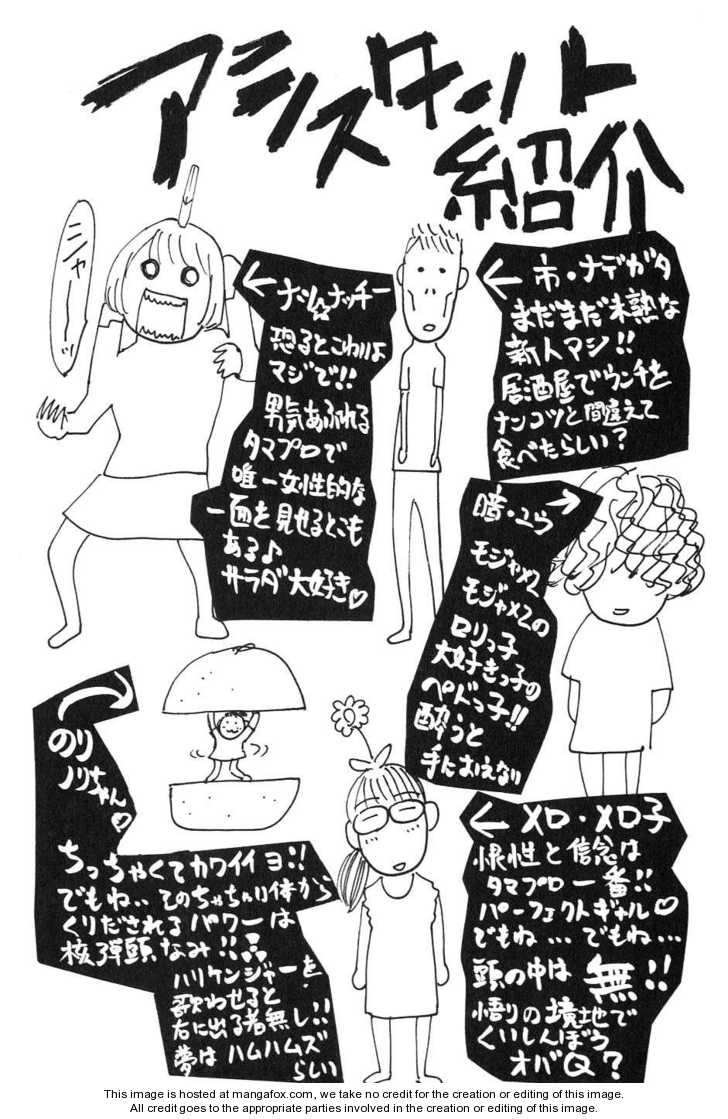 アシスタント
紹介
← 市・ナデガタ
まだまだ未熟な
新人マシ!!
居酒屋でウンチを
ナンコツと間違えて
食べたらしい?
ニャーッ
← ナシ☆ナッチー
怒るとこわいよ
マジで!!
男気あふれる
タマプロで
唯一女性的な
一面を見せるときも
ある♪
サラダ大好き♡
暗・ユウ →
モジャ×2
モジャ×2の
ロリっ子
大好きっ子の
ペドっ子!!
酔うと
手におえない
のり
ノリちゃん♡
ちっちゃくてカワイイヨ!!
でもね..そのちゃちい体から
くりだされるパワーは
核弾頭なみ!!
ハリケンジャーを
歌わせると
右に出る者無し!!
夢はハムハムズ
らしい
← メロ・メロ子
根性と信念は
タマプロ一番!!
パーフェクトギャル♡
でもね…でもね…
頭の中は無!!
悟りの境地で
くいしんぼう
オバQ?
This image is hosted at mangafox.com, we take no credit for the creation or editing of this image.
All credit goes to the appropriate parties involved in the creation or editing of this image.